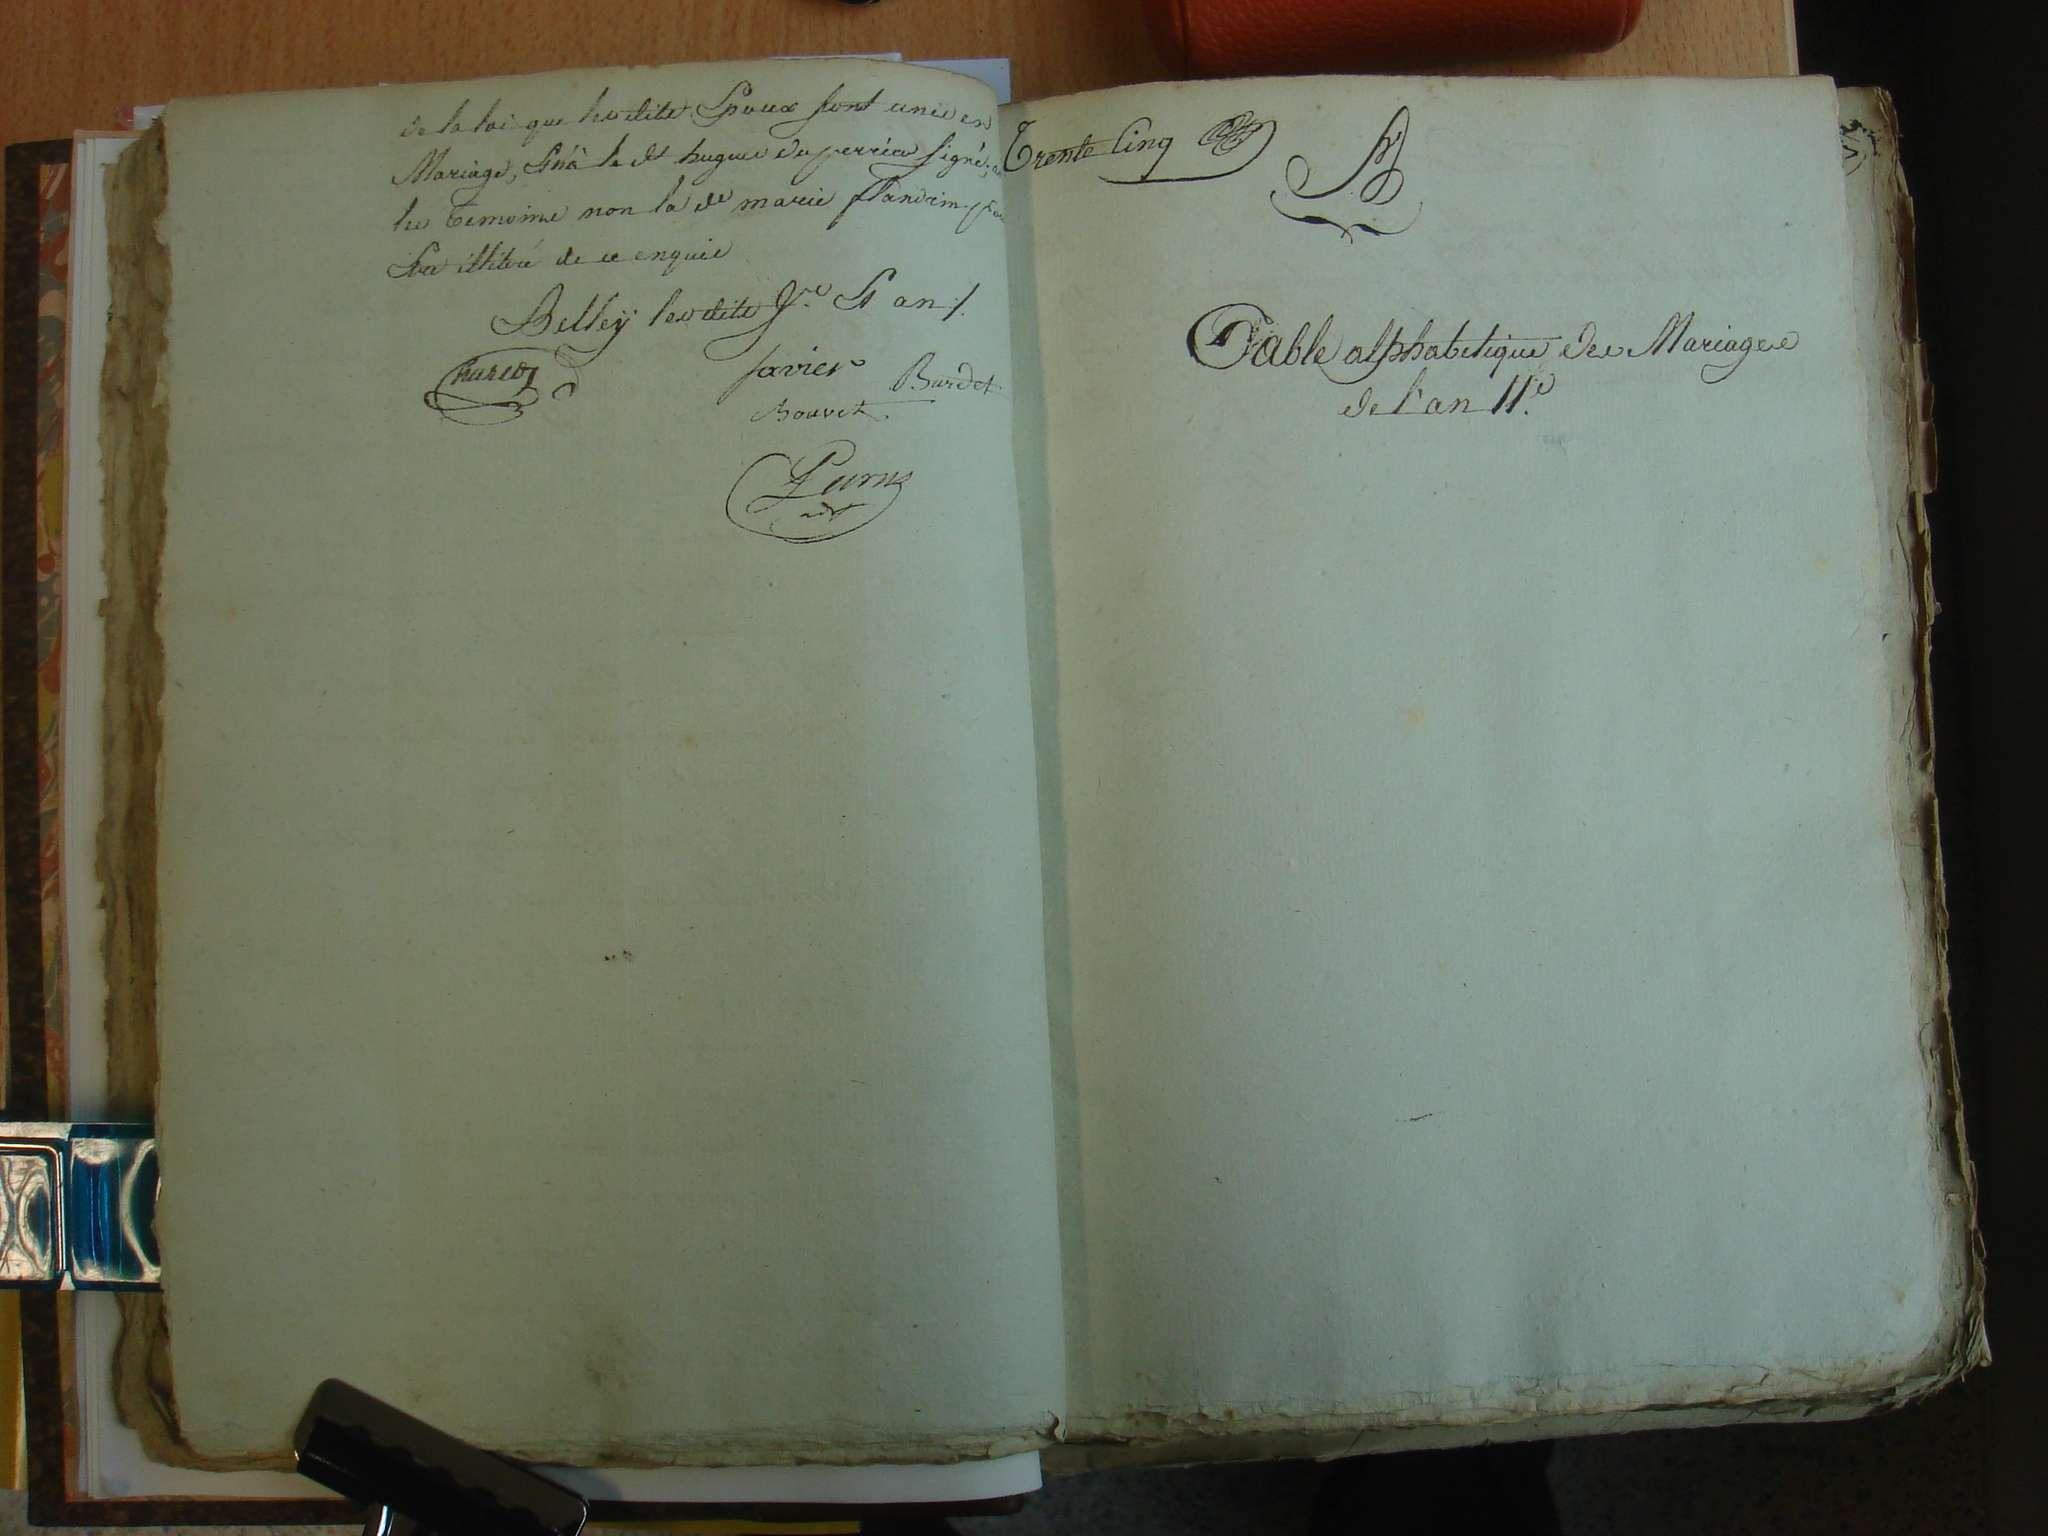 de la loi que lesdits Epoux sont unis en
Mariage, Et a le dt hugues duperréau signé,
les temoins non la de marie flandrin pour
Etre illitéré de ce enquis
Belley lesdits Jrs Et an /.
Javier Burdet
Bouvet
Trente Cinq
Table alphabetique des Mariages
de l'an 11.e